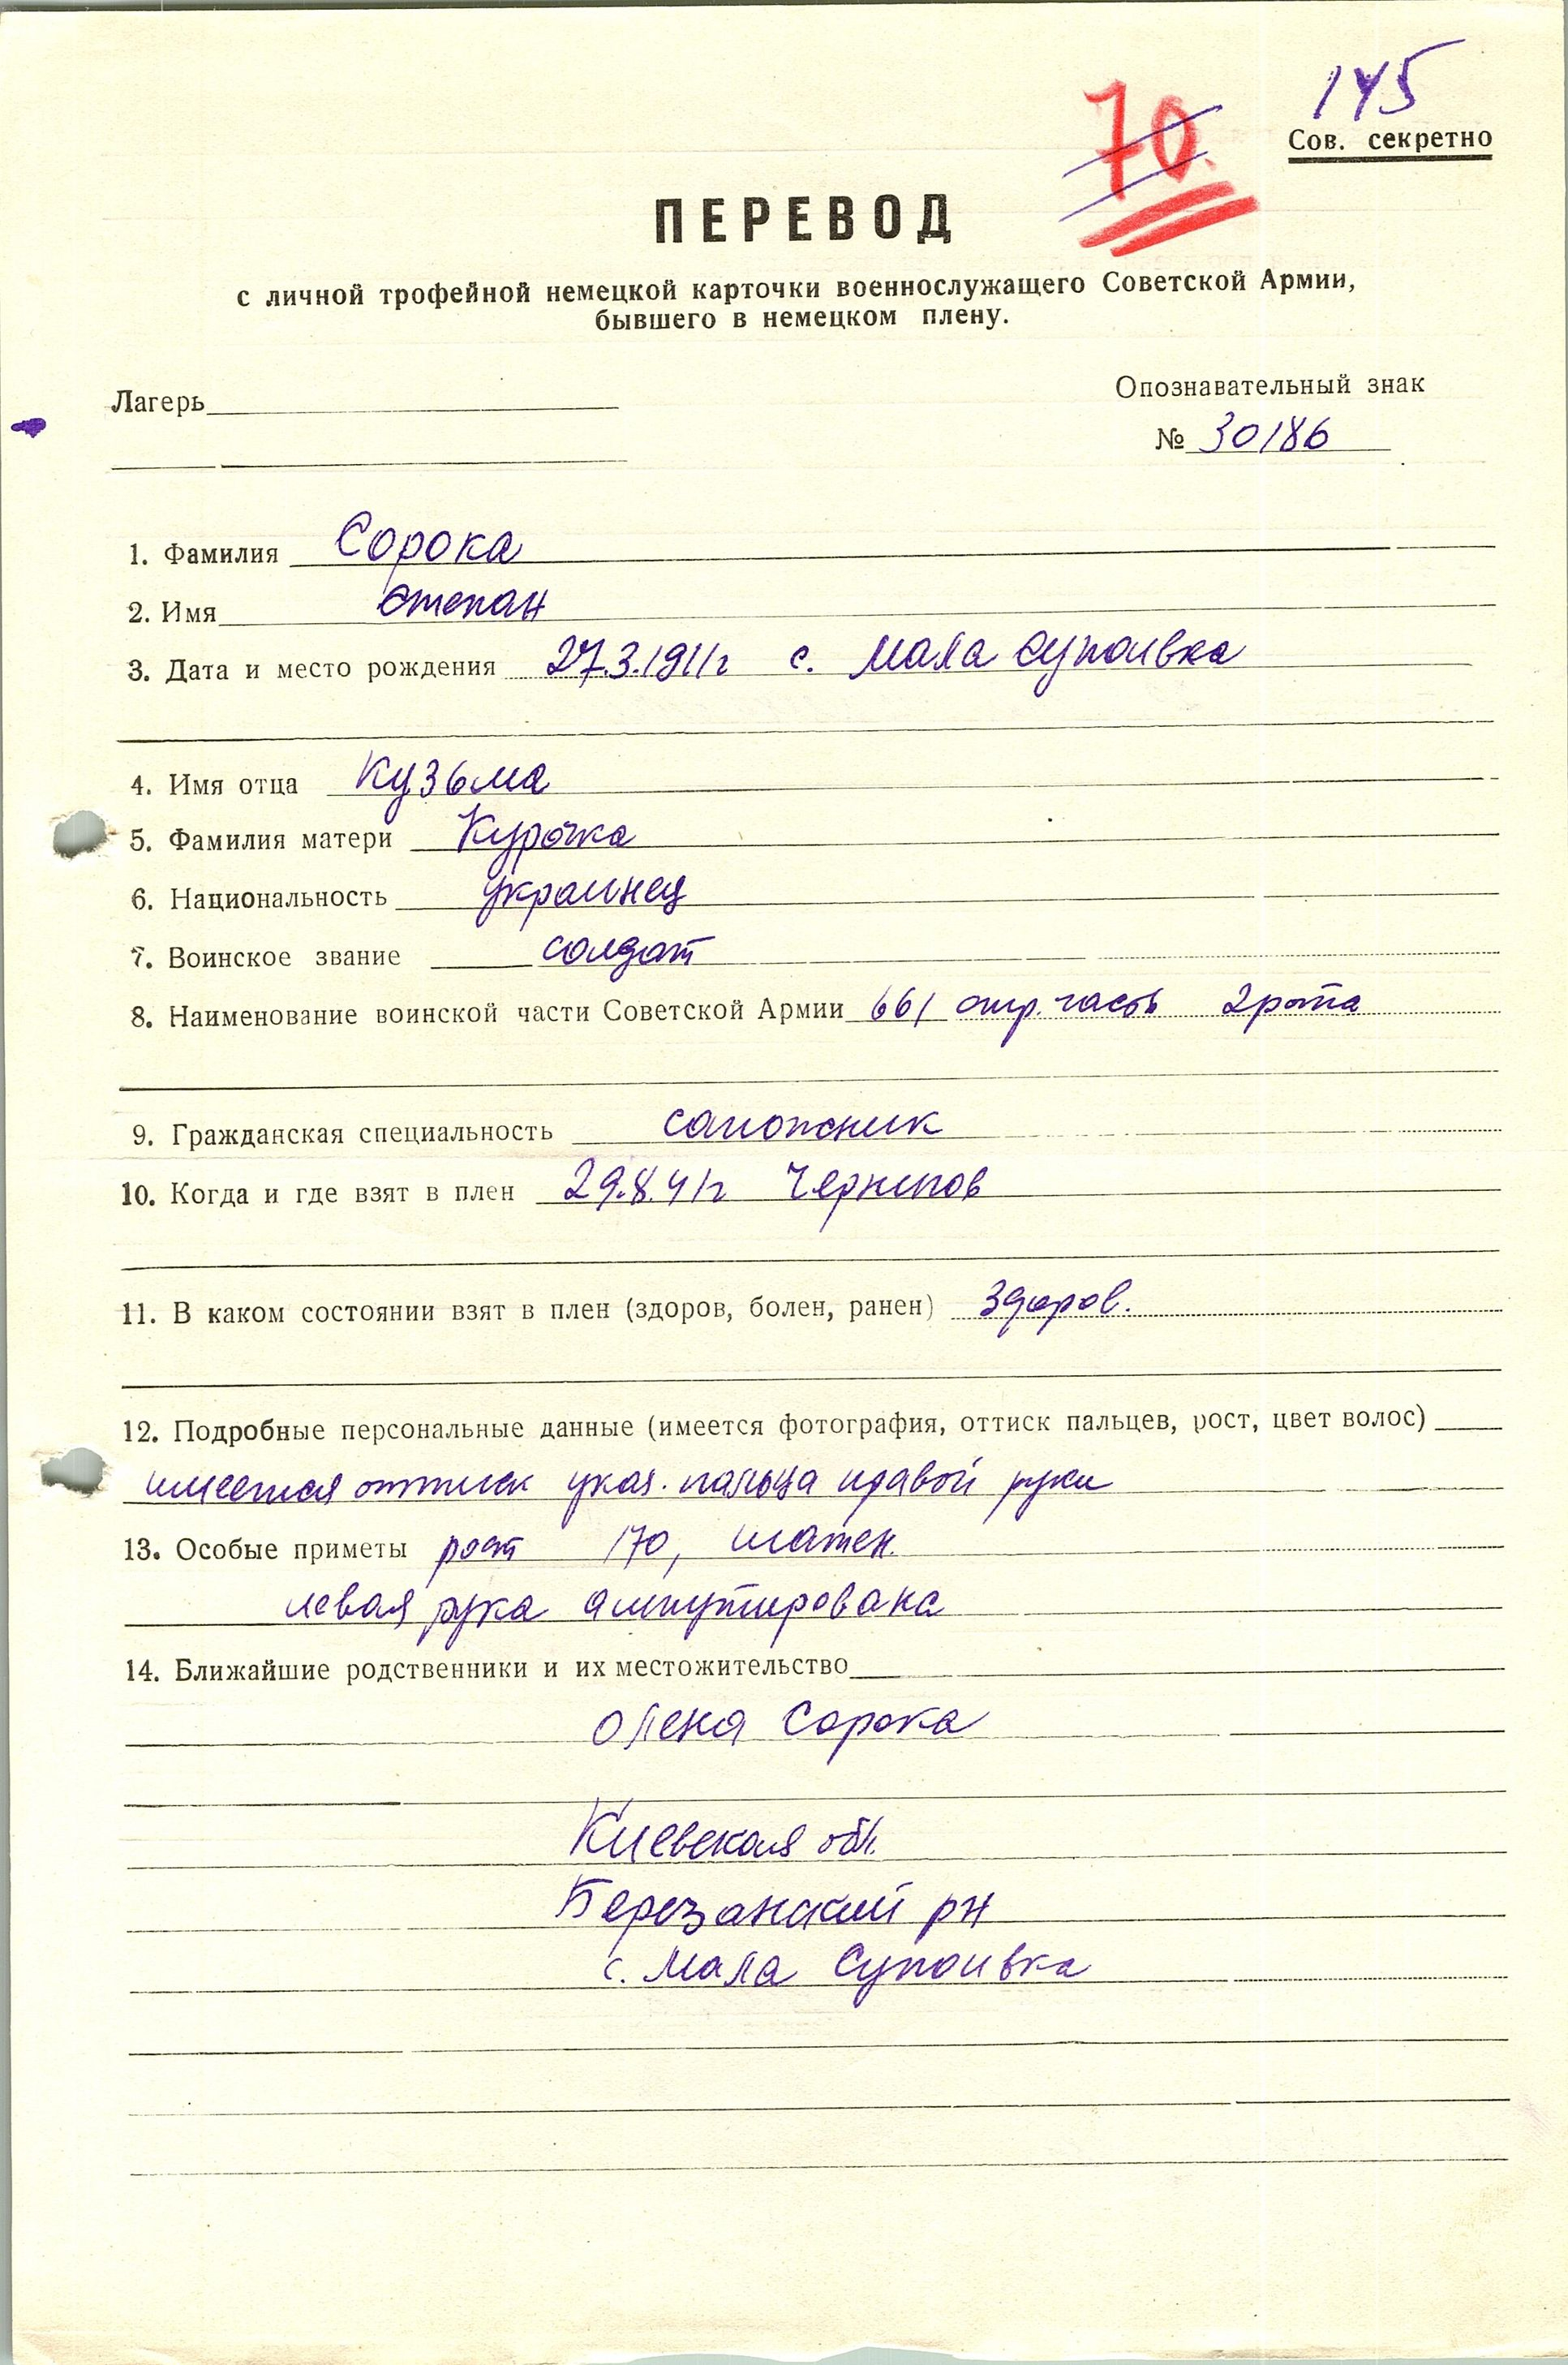 145
70.
Сов. секретно
ПЕРЕВОД
с личной трофейной немецкой карточки военнослужащего Советской Армии,
бывшего в немецком плену.
Лагерь
Опознавательный знак
№ 30186
1. Фамилия Сорока
2. Имя Степан
3. Дата и место рождения 27.3.1911г с. Мала Супоивка
4. Имя отца Кузьма
5. Фамилия матери Курочка
6. Национальность украинец
7. Воинское звание солдат
8. Наименование воинской части Советской Армии 661 стр. часть 2 рота
9. Гражданская специальность сапожник
10. Когда и где взят в плен 29.8.41г Чернигов
11. В каком состоянии взят в плен (здоров, болен, ранен) здоров.
12. Подробные персональные данные (имеется фотография, оттиск пальцев, рост, цвет волос)
имеется оттиск указ. пальца правой руки
13. Особые приметы рост 170, шатен.
левая рука ампутирована
14. Ближайшие родственники и их местожительство
Олена Сорока
Киевская обл.
Березанский рн
с. Мала Супоивка